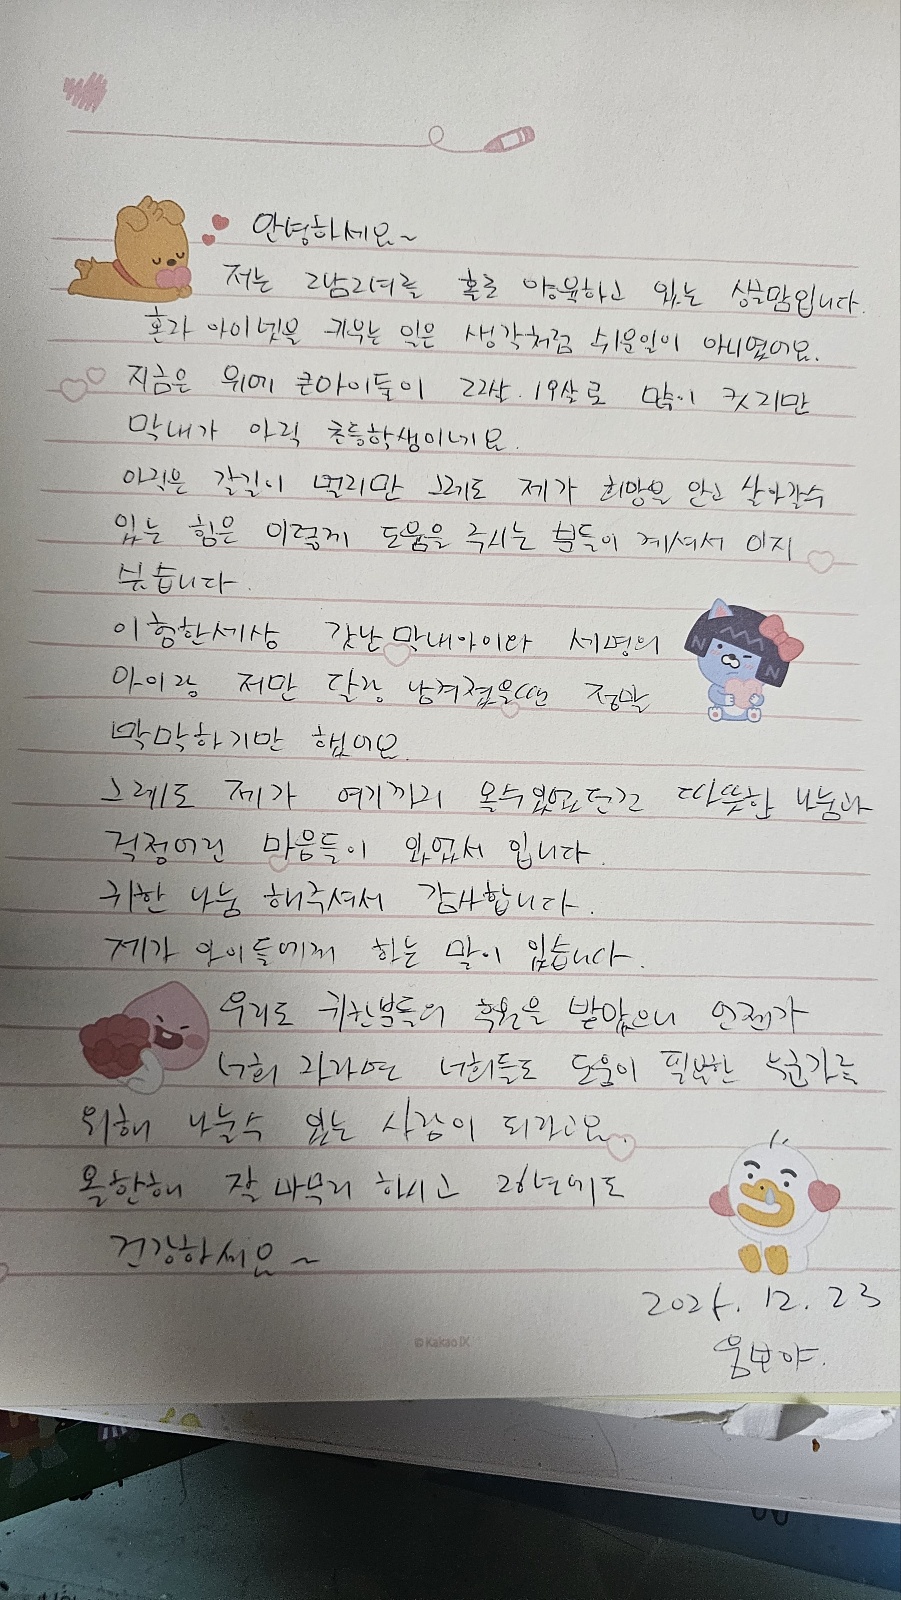 안녕하세요~
저는 2남2녀를 홀로 양육하고 있는 싱글맘입니다.
혼자 아이넷을 키우는 일은 생각처럼 쉬운일이 아니였어요.
지금은 위에 큰아이들이 22살. 19살로 많이 컷지만
막내가 아직 초등학생이네요.
아직은 갈길이 멀지만 그래도 제가 희망을 안고 살아갈수
있는 힘은 이렇게 도움을 주시는 분들이 계셔서 이지
싶습니다.
이험한세상 갓난막내아이와 세명의
아이랑 저만 달랑 남겨졌을때 정말
막막하기만 했어요.
그래도 제가 여기까지 올수있었던건 따뜻한 나눔과
걱정어린 마음들이 있었서 입니다.
귀한 나눔 해주셔서 감사합니다.
제가 아이들에게 하는 말이 있습니다.
우리도 귀한분들의 후원을 받았으니 언젠가
너희 자라면 너희들도 도움이 필요한 누군가를
위해 나눌수 있는 사람이 되라고요.
올한해 잘 마무리 하시고 26년에도
건강하세요~
2025. 12. 23
© Kakao IX